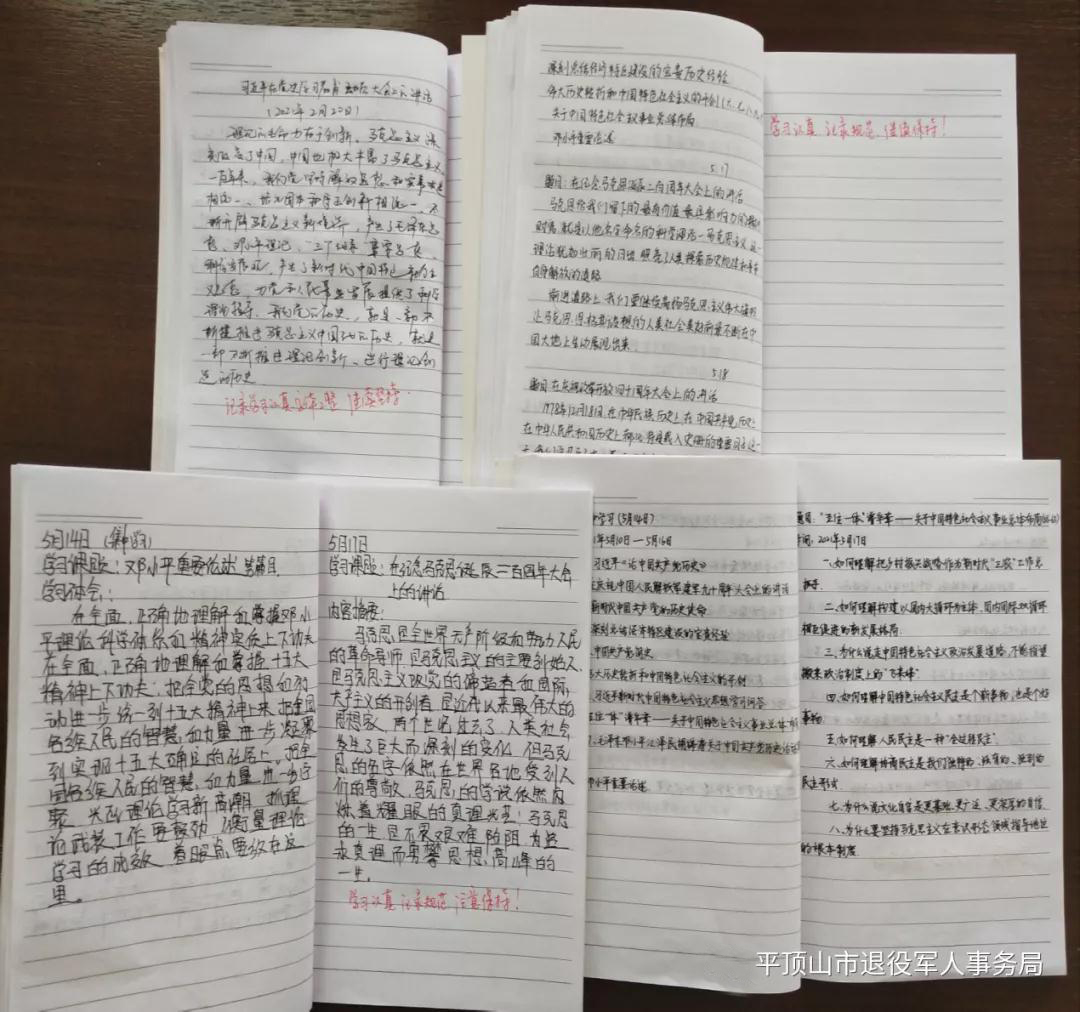 习近平在党史学习教育动员大会上的讲话
(2021年2月20日)
理论的生命力在于创新。马克思主义深
刻改变了中国,中国也极大丰富了马克思主义。
一百年来,我们党坚持解放思想和实事求是
相统一、培元固本和守正创新相统一,不
断开辟马克思主义新境界,产生了毛泽东思
想、邓小平理论、三个代表重要思想、
科学发展观,产生了新时代中国特色社会主
义思想,为党和人民事业发展提供了科学
理论指导。我们党的历史,就是一部不
断推进马克思主义中国化的历史,就是
一部不断推进理论创新、进行理论创
造的历史
记录学习认真
深刻总结经济特区建设的宝贵历史经验
伟大历史转折和中国特色社会主义的开创
关于中国特色社会主义事业总体布局
邓小平重要论述
5.17
题目:在纪念马克思诞辰二百周年大会上的讲话
马克思给我们留下的最有价值、最具影响力的精神
财富,就是以他名字命名的科学理论—马克思主义,这一
理论犹如壮丽的日出,照亮了人类探索历史规律和寻求
自身解放的道路
前进道路上,我们要继续高扬马克思主义伟大旗帜
让马克思、恩格斯设想的人类社会美好前景不断在中
国大地上生动展现出来.
5.18
题目:在庆祝改革开放四十周年大会上的讲话
1978年12月18日,在中华民族历史上,在中国共产党历史上
在中华人民共和国历史上,都必将是载入史册的重要日子,这一
学习认真 记录规范 继续保持!
5月14日 (集中学习)
学习课题:邓小平重要论述 第篇目
学习体会:
在全面、正确地理解和掌握邓小
平理论科学体系和精神实质上下功夫
在全面、正确地理解和掌握十五大
精神上下功夫;把全党的思想和行
动进一步统一到十五大精神上来,把全国
各族人民的智慧和力量进一步凝聚
到实现十五大确定的任务上。把全
国各族人民的智慧和力量进一步凝
聚 兴起理论学习新高潮 抓理
论武装工作要鼓劲 衡量理论
学习的成效 着眼点要放在这
里。
5月17日
学习课题:在纪念马克思诞辰二百周年大会
上的讲话
内容摘要:
马克思是全世界无产阶级和劳动人民
的革命导师,是马克思主义的主要创始人,
是马克思主义政党的缔造者和国际
共产主义的开创者,是近代以来最伟大的
思想家,两个世纪过去了,人类社会
发生了巨大而深刻的变化,但马克
思的名字依然在世界各地受到人
们的尊敬,马克思的学说依然闪
烁着耀眼的真理光芒;马克思
的一生,是不畏艰难险阻、为追
求真理而勇攀思想高峰的
一生。
学习认真 记录规范 注意保持!
中学习(5月14日)
1年5月10日——5月16日
习近平《论中国共产党历史》
庆祝中国人民解放军建军九十周年大会上的讲话
新时代中国共产党的历史使命
深刻总结经济特区建设的宝贵经验
中国共产党简史
大历史转折和中国特色社会主义的开创
习近平新时代中国特色社会主义思想学习问答
五位一体"谱华章——关于中国特色社会主义事业总体布
毛泽东邓小平江泽民胡锦涛关于中国共产党历史论述
小平重要论述
题目:"五位一体"谱华章——关于中国特色社会主义事业总体布局
时间:2021年5月17日
一.如何理解把乡村振兴战略作为新时代"三农"工作总
抓手.
二.如何理解构建以国内大循环为主体、国内国际双循环
相互促进的新发展格局.
三.为什么说走中国特色社会主义政治发展道路,不能指望
搬来政治制度上的"飞来峰"
四.如何理解中国特色社会主义民主是个新事物,也是个好
事物.
五.如何理解人民民主是一种"全过程民主".
六.如何理解协商民主是我们独特的、独有的、独到的
民主形式.
七.为什么说文化自信是更基础、更广泛、更深厚的自信
八.为什么要坚持马克思主义在意识形态领域指导地位
的根本制度.
平顶山市退役军人事务局